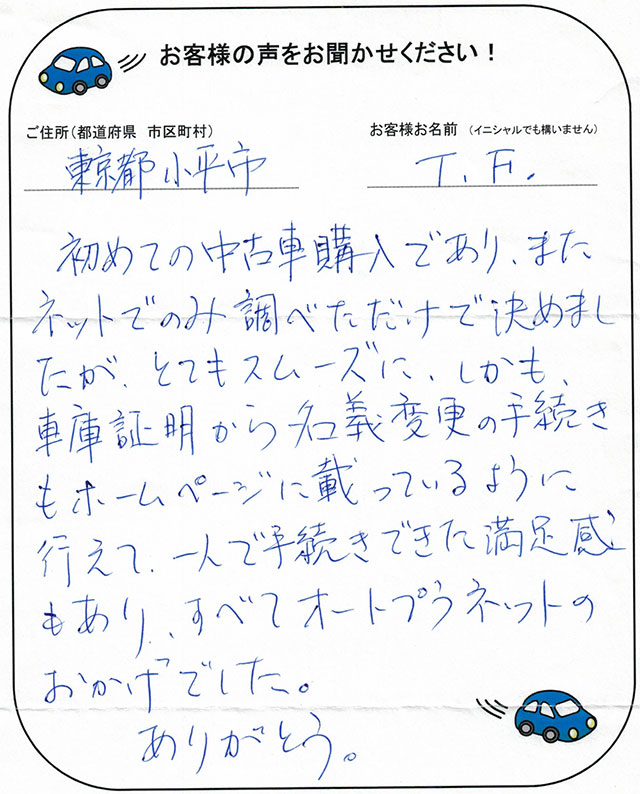 お客様の声をお聞かせください！
ご住所（都道府県 市区町村）
お客様お名前 （イニシャルでも構いません）
東京都小平市
T.F.
初めての中古車購入であり、また
ネットでのみ調べただけで決めまし
たが、とてもスムーズに、しかも、
車庫証明から名義変更の手続き
もホームページに載っているように
行えて、一人で手続きできた満足感
もあり、すべてオートプラネットの
おかげでした。
ありがとう。